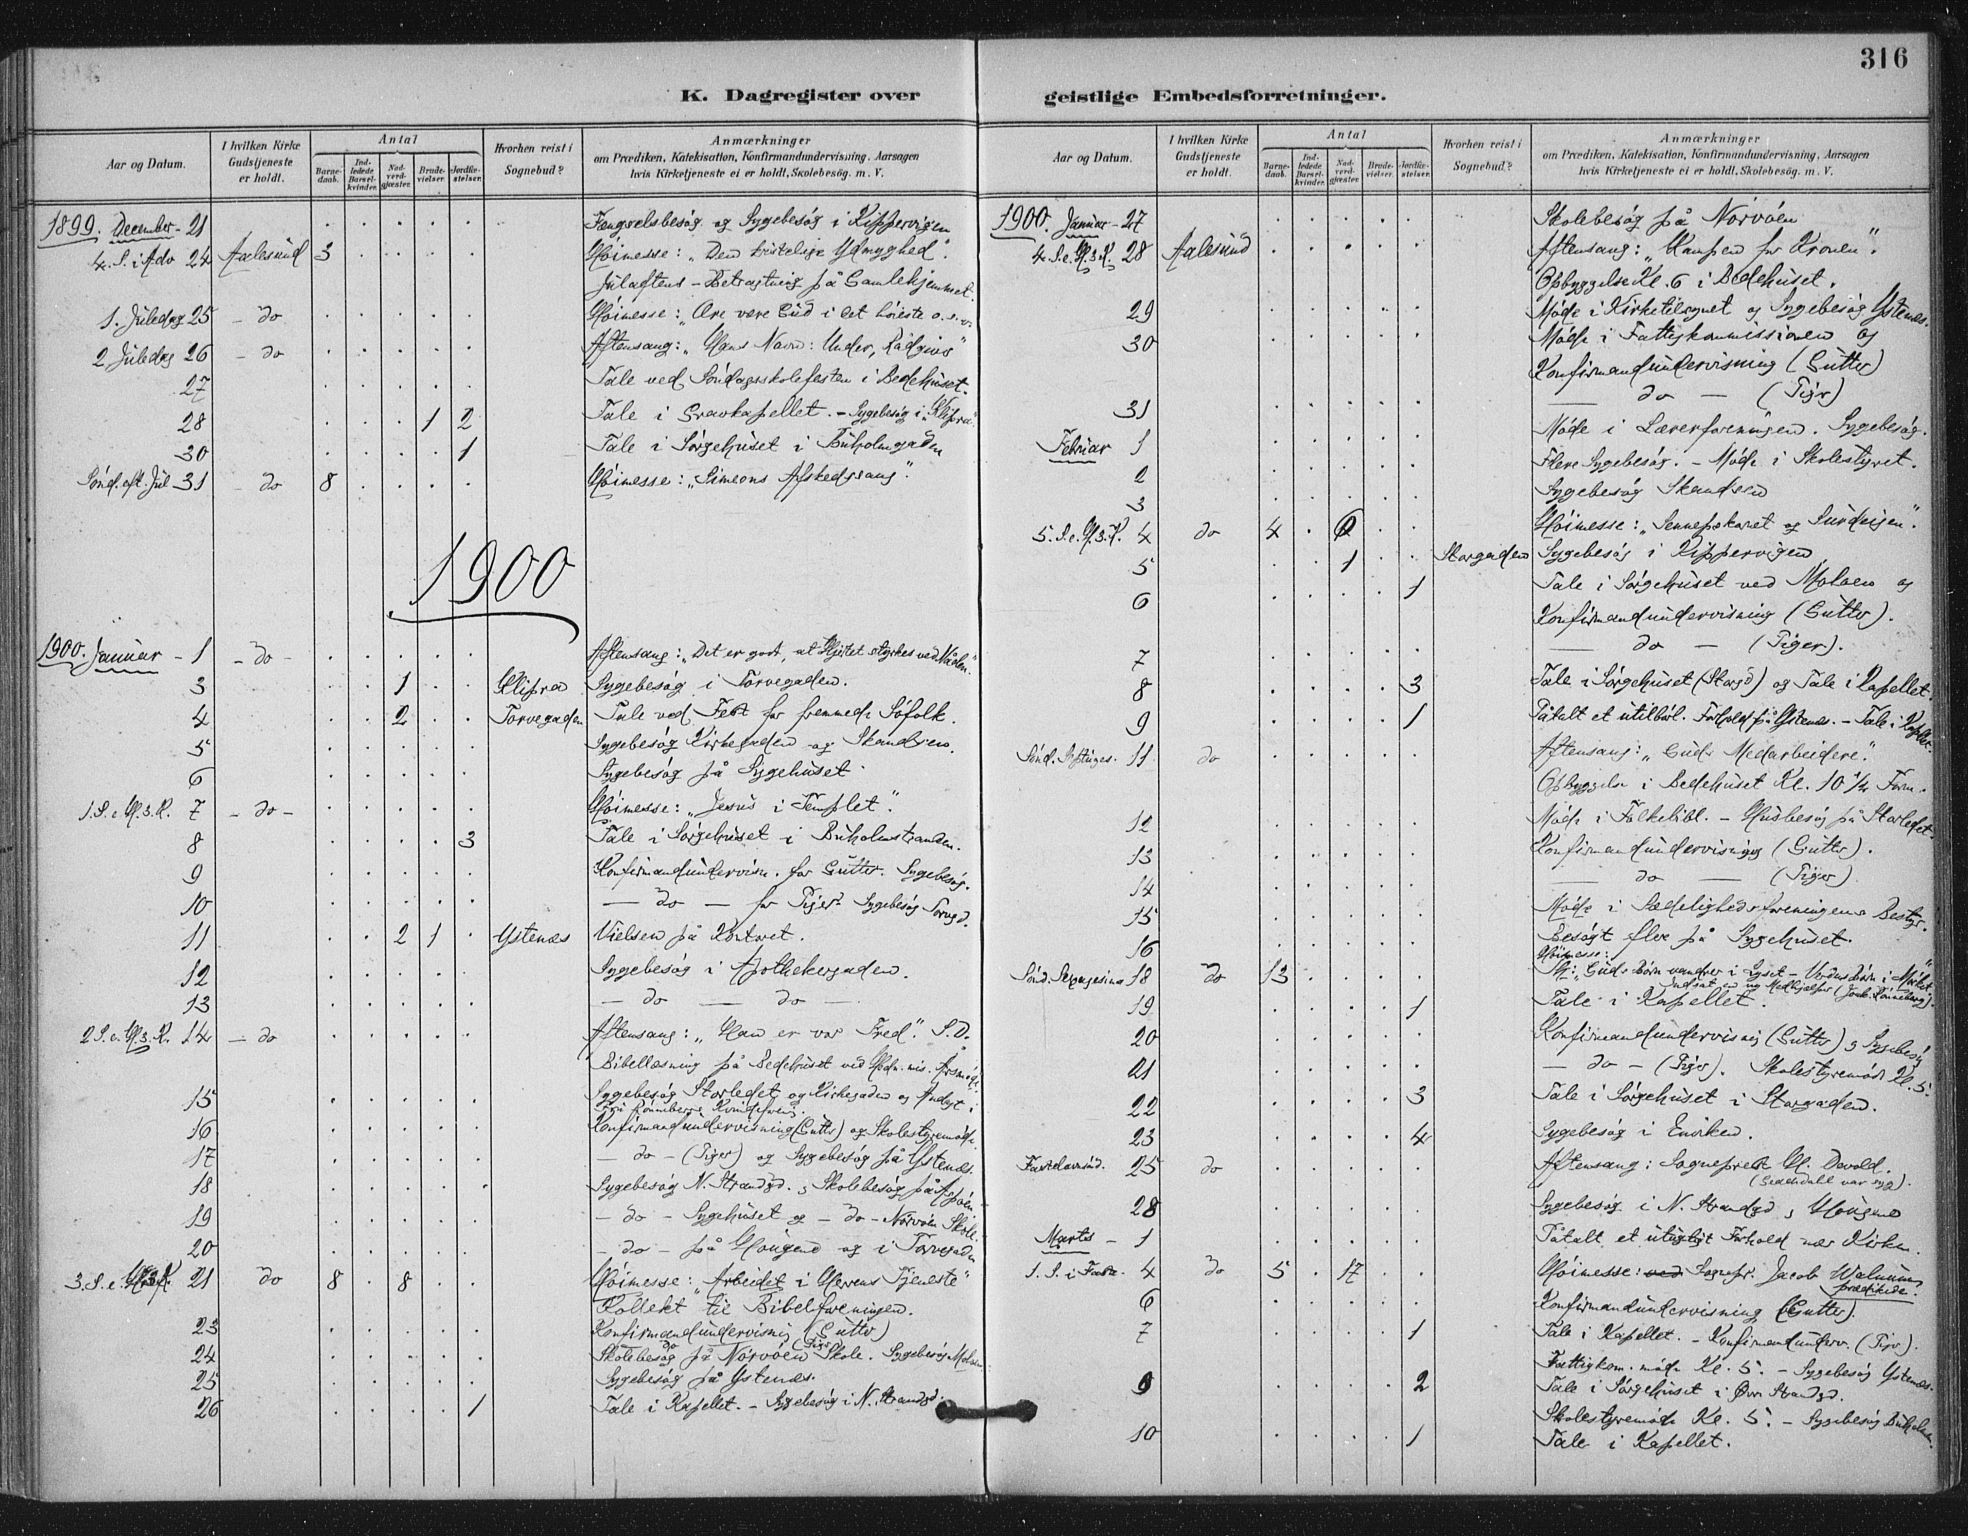 316
K. Dagregister over
Aar og Datum.
I hvilken Kirke Gudstjeneste er holdt.
Antal
Barne-daab.
Ind-ledede Barsel-kvinder.
Nad-verd-gjæster.
Brude-vielser.
Jordfæ-stelser.
Hvorhen reist i Sognebud?
Anmærkninger
om Prædiken, Katekisation, Konfirmandundervisning, Aarsagen
hvis Kirketjeneste ei er holdt, Skolebesøg. m. V.
1899. December - 21 Fængselsbesøg og Sygebesøg i Kippervigen
4. S. i Adv 24 Aalesund 3 Høimesse: „Den kristelige Ydmyghed".
Juleaftens-Betragtning på Gamlehjemmet.
1. Juledag 25 - do Høimesse: „Ære være Gud i det høieste o.s.v.
2 Juledag 26 - do Aftensang: „Hans Navn: Under, Rådgiver"
27 Tale ved Søndagsskolefesten i Bedehuset.
28 1 2 Tale i Gravkapellet. - Sygebesøg i „Klipra"
30 1 Tale i Sørgehuset i Buholmgaden
Sönd. eft. Jul 31 - do 8 Høimesse: „Simeons Afskedssang".
1900
1900. Januar - 1 - do - Aftensang: „Det er godt, at Hjertet styrkes ved Nåden."
3 1 Klipra Sygebesøg i Torvegaden.
4 2 Torvegaden Tale ved Fest for fremmede Søfolk.
5 Sygebesøg Kirkegaden og Skandsen.
6 Sygebesøg på Sygehuset.
1. S. e. H. 3. K. 7 - do - Høimesse: „Jesus i Templet".
8 3 Tale i Sørgehuset i Buholmstranden.
9 Konfirmandundervisn. for Gutter. Sygebesøg.
10 - do - for Piger. Sygebesøg Torvgd.
11 2 1 Ystenæs Vielsen på Kontoret.
12 Sygebesøg i Apothekergaden.
13 - do - do -
2 S. e. H. 3. K. 14 - do Aftensang: „Han er vor Fred". S.D.
Bibellæsning på Bedehuset ved Hedn. mis. Årsmøde.
15 Sygebesøg Storledet og Kirkegaden og Andagt i
Fru Rønnebergs Kvindeforen.
16 Konfirmandundervisning (Gutter) og Skolestyremøde.
17 - do - (Piger) og Sygebesøg på Ystenæs.
18 Sygebesøg N. Strandgd. , Skolebesøg på Aspøen
19 - do - Sygehuset og - do - Nørvøen Skole.
20 - do - på Haugen og i Torvegaden
3. S. e. H. 3. K. 21 do 8 8 Høimesse: „Arbeidet i Herrens Tjeneste"
Kollekt til Bibelforeningen.
23 Konfirmandundervisning (Gutter)
do (Piger)
24 Skolebesøg på Nørvøen Skole. Sygebesøg Moloen
25 Sygebesøg på Ystenæs.
26 1 Tale i Kapellet. - Sygebesøg i N. Strandgd.
geistlige Embedsforretninger.
Aar og Datum.
I hvilken Kirke Gudstjeneste er holdt.
Antal
Barne-daab.
Ind-ledede Barsel-kvinder.
Nad-verd-gjæster.
Brude-vielser.
Jordfæ-stelser.
Hvorhen reist i Sognebud?
Anmærkninger
om Prædiken, Katekisation, Konfirmandundervisning, Aarsagen
hvis Kirketjeneste ei er holdt, Skolebesøg. m. V.
1900. Januar - 27 Skolebesøg på Nørvøen
4 S. e. H. 3. K. 28 Aalesund Aftensang: „Kampen for Kronen".
Opbyggelse Kl. 6 i Bedehuset.
29 Møde i Kirketilsynet og Sygebesøg Ystenæs.
30 Møde i Fattigkommissionen og
Konfirmandundervisning (Gutter)
31 - do - (Piger)
Februar 1 Møde i Lærerforeningen. Sygebesøg.
2 Flere Sygebesøg. - Møde i Skolestyret.
3 Sygebesøg Skandsen
5. S. e. H. 3. K. 4 do 4 6 Høimesse: „Sennepskornet og Surdeigen".
5 1 Storgaden Sygebesøg i Kippervigen
6 1 Tale i Sørgehuset ved Moloen og
Konfirmandundervisning (Gutter).
7 - do - (Piger).
8 3 Tale i Sørgehuset (Storgd) og Tale i Kapellet
9 1 Påtalt et utilbørl. Forhold på Ystenæs. - Tale i Kapellet.
Sönd. Septuages. 11 do Aftensang: „Guds Medarbeidere".
Opbyggelse i Bedehuset Kl. 10 1/4 Form.
12 Møde i Folkebibl. - Husbesøg på Storledet.
13 Konfirmandundervisning (Gutter).
14 - do - (Piger)
15 Møde i Sædelighedsforeningens Bestyr.
16 Besøgt flere på Sygehuset.
Høimesse:
Sönd. Sexagesima 18 do 13 „Guds Børn vandrer i Lyset - Verdens Børn i Mørket."
Indsat en ny Medhjælper (Joak. Rønneberg).
19 1 Tale i Kapellet.
20 Konfirmandundervisning (Gutter) , Sygebesøg
21 - do - (Piger). Skolestyremøde Kl. 5.
22 3 Tale i Sørgehuset i Storgaden.
23 4 Sygebesøg i Enviken.
Fastelavnssd. 25 do Aftensang: Sogneprest H. Devold.
28 Sygebesøg i N. Strandgd , Haugen
Marts - 1 Påtalt et utugtigt Forhold nær Kirken.
1. S. i Faste. 4 do 5 17 Høimesse: ved Sognepr. Jacob Walnum
prædikede.
6 Konfirmandundervisning (Gutter).
7 1 Tale i Kapellet. - Konfirmandunderv. (Piger).
Fattigkom. møde Kl. 5. - Sygebesøg Ystenæs.
9 2 Tale i Sørgehuset i Øvr. Strandgd.
Skolestyremøde Kl. 5. - Sygebesøg Buholmen.
10 1 Tale i Kapellet.